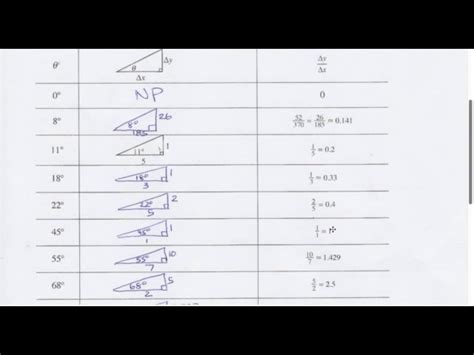 θ° θ Δy Δx Δy/Δx
0° NP 0
8° 8° 26 185 52/370 = 26/185 = 0.141
11° 11° 1 5 1/5 = 0.2
18° 18° 1 3 1/3 = 0.33
22° 22° 2 5 2/5 = 0.4
45° 1 1 1/1 =
55° 55° 10 7 10/7 = 1.429
68° 68° 5 2 5/2 = 2.5